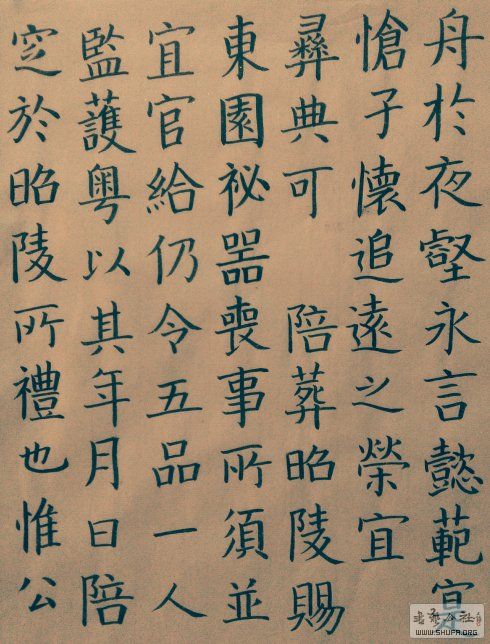 舟於夜壑永言懿範宜
愴子懷追遠之榮宜
彞典可 陪葬昭陵賜
東園祕器喪事所須並
宜官給仍令五品一人
監護粵以其年月日陪
窆於昭陵所禮也惟公
WWW.SHUFA.ORG